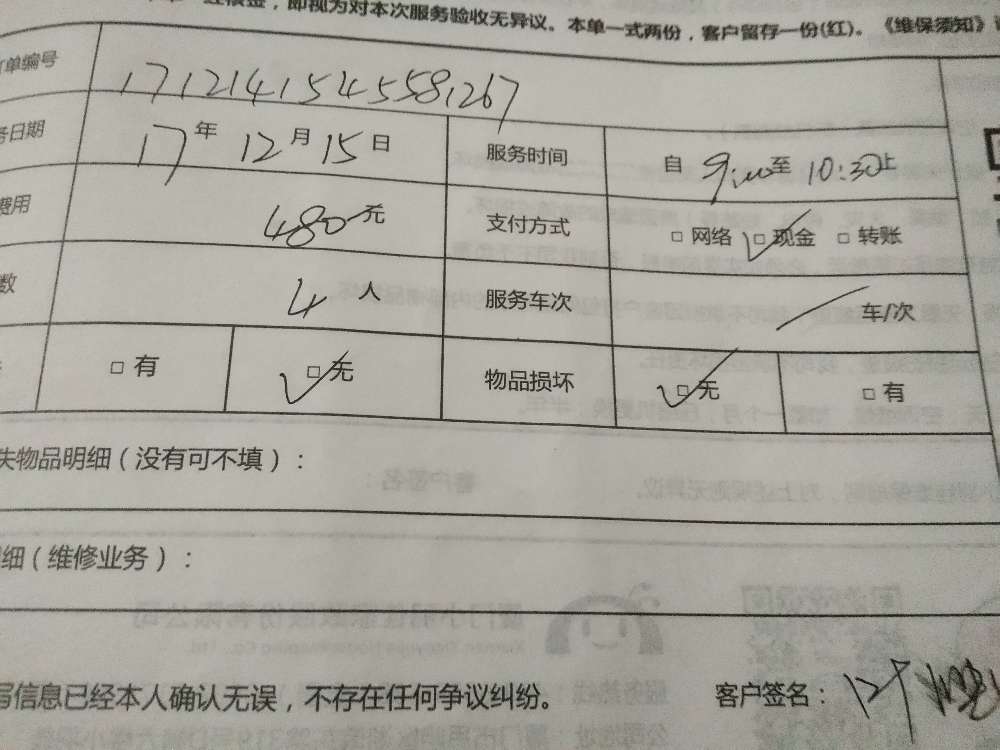 即视为对本次服务验收无异议。本单一式两份，客户留存一份(红)。《维保须知》
单编号 1712141545581267
日期 17年12月15日 服务时间 自9:00至10:30止
费用 480元 支付方式 □网络 □现金 □转账
数 4人 服务车次 车/次
□有 □无 物品损坏 □无 □有
失物品明细（没有可不填）：
细（维修业务）：
写信息已经本人确认无误，不存在任何争议纠纷。 客户签名：